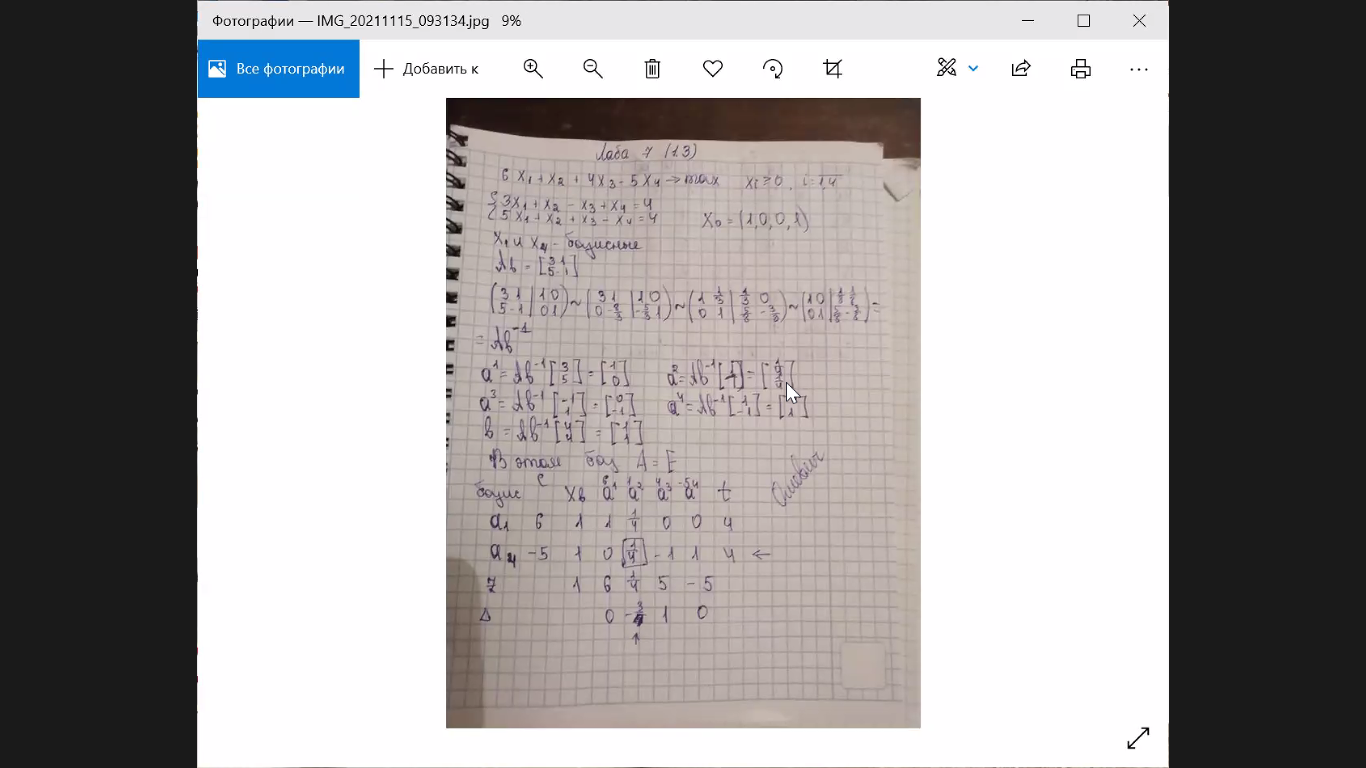 Фотографии — IMG_20211115_093134.jpg 9%
Все фотографии
Добавить к
Лаба 7 (1.3)
6 x₁ + x₂ + 4x₃ - 5x₄ → max xᵢ ≥ 0, i = 1,4
{ 3x₁ + x₂ - x₃ + x₄ = 4
{ 5x₁ + x₂ + x₃ - x₄ = 4 X₀ = (1,0,0,1)
x₁ и x₄ - базисные
Aб = [3 1; 5 -1]
(3 1 | 1 0; 5 -1 | 0 1) ~ (3 1 | 1 0; 0 -8/3 | -5/3 1) ~ (1 1/3 | 1/3 0; 0 1 | 5/8 -3/8) ~ (1 0 | 1/8 1/8; 0 1 | 5/8 -3/8) =
= Aб⁻¹
a¹ = Aб⁻¹ [3; 5] = [1; 0] a² = Aб⁻¹ [1; 1] = [1/4; 1/4]
a³ = Aб⁻¹ [-1; 1] = [0; -1] a⁴ = Aб⁻¹ [1; -1] = [0; 1]
b = Aб⁻¹ [4; 4] = [1; 1]
В этом баз A = E
6 1 4 -5
базис C Xб a¹ a² a³ a⁴ t
a₁ 6 1 1 1/4 0 0 4
a₄ -5 1 0 1/4 -1 1 4 ←
z 1 6 1/4 5 -5
Δ 0 -3/4 1 0
↑